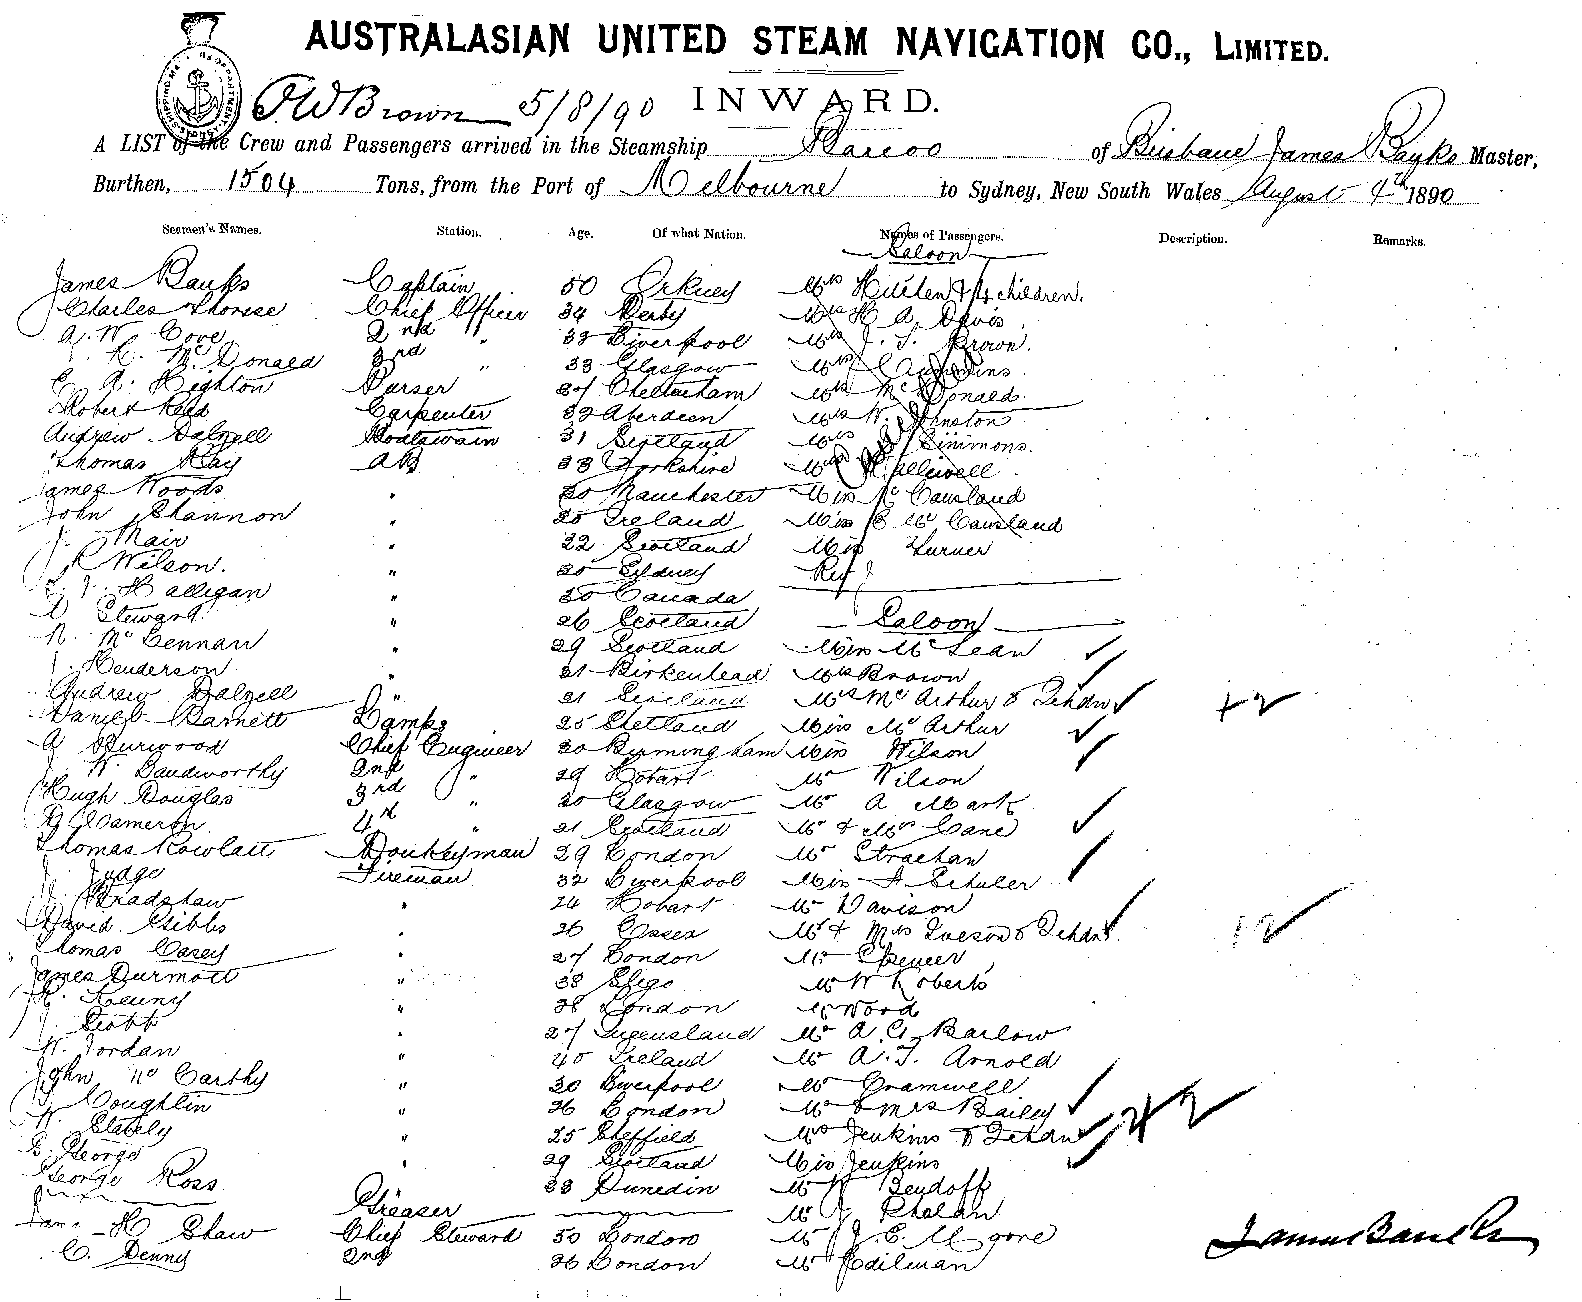 AUSTRALASIAN UNITED STEAM NAVIGATION CO., LIMITED.
J.W Brown 5/8/90 INWARD.
A LIST of the Crew and Passengers arrived in the Steamship Barcoo of Brisbane James Banks Master,
Burthen, 1504 Tons, from the Port of Melbourne to Sydney, New South Wales August 4th 1890
Seamen's Names. Station. Age. Of what Nation. Names of Passengers. Description. Remarks.
Saloon
James Banks Captain 50 Orkney Mrs & 4 children.
Charles Chief Officer 34 Derby Mrs H A Davis
A. W. Cove 2nd " 33 Liverpool Mrs J. T. Brown.
McDonald 3rd " 33 Glasgow Mrs Cummins
C A. Heighton Purser 27 Cheltenham Mrs McDonald
Robert Reid Carpenter 32 Aberdeen Mrs W Johnston
Andrew Dalzell Boatswain 31 Scotland Mrs Simmons.
Thomas Kay AB 33 Yorkshire Mrs Halliwell
James Woods " 30 Manchester Miss McCausland
John Shannon " 25 Ireland Miss E McCausland
J. Mair " 22 Scotland Miss Turner
J. Wilson. " 20 Sydney Rev
J. Halligan " 30 Canada
D Stewart " 26 Scotland Saloon
N. McLennan " 29 Scotland Miss McLean
J. Henderson " 21 Birkenhead Mrs Brown
Andrew Dalzell " 21 Scotland Mrs McArthur & 2 chdn + 2
Daniel Barnett Lamps 25 Shetland Miss McArthur
A Durwood Chief Engineer 30 Birmingham Miss Wilson
W. Dandworthy 2nd " 29 Hobart Mr Wilson
Hugh Douglas 3rd " 30 Glasgow Mr A Mark
R Cameron 4th " 21 Scotland Mr & Mrs Lane
Thomas Rowlatt Donkeyman 29 London Mr Strachan
J. Judge Fireman 32 Liverpool Miss A Schuler
J. Bradshaw " 24 Hobart Mr Davison
David Gibbs " 26 Essex Mr & Mrs & 2 chdn 2
Thomas Carey " 27 London Mr Spencer
James Durmott " 38 Sligo Mr W Roberts
H. Keeny " 38 London Mr Wood
J. Scott " 27 Queensland Mr A. G. Barlow
W. Jordan " 40 Ireland Mr A. T. Arnold
John McCarthy " 30 Liverpool Mr Cramwell
J. Coughlin " 26 London Mr & Mrs Bailey
W. Stabely " 25 Sheffield Mrs Jenkins & 2 chdn 2
E. George " 29 Scotland Miss Jenkins
George Ross " 33 Dunedin Mr W Bendoff
Greaser Mr J Phelan
H Shaw Chief Steward 50 London Mr J. E. Moore
C. Denny 2nd 26 London Mr Edilman
James Banks